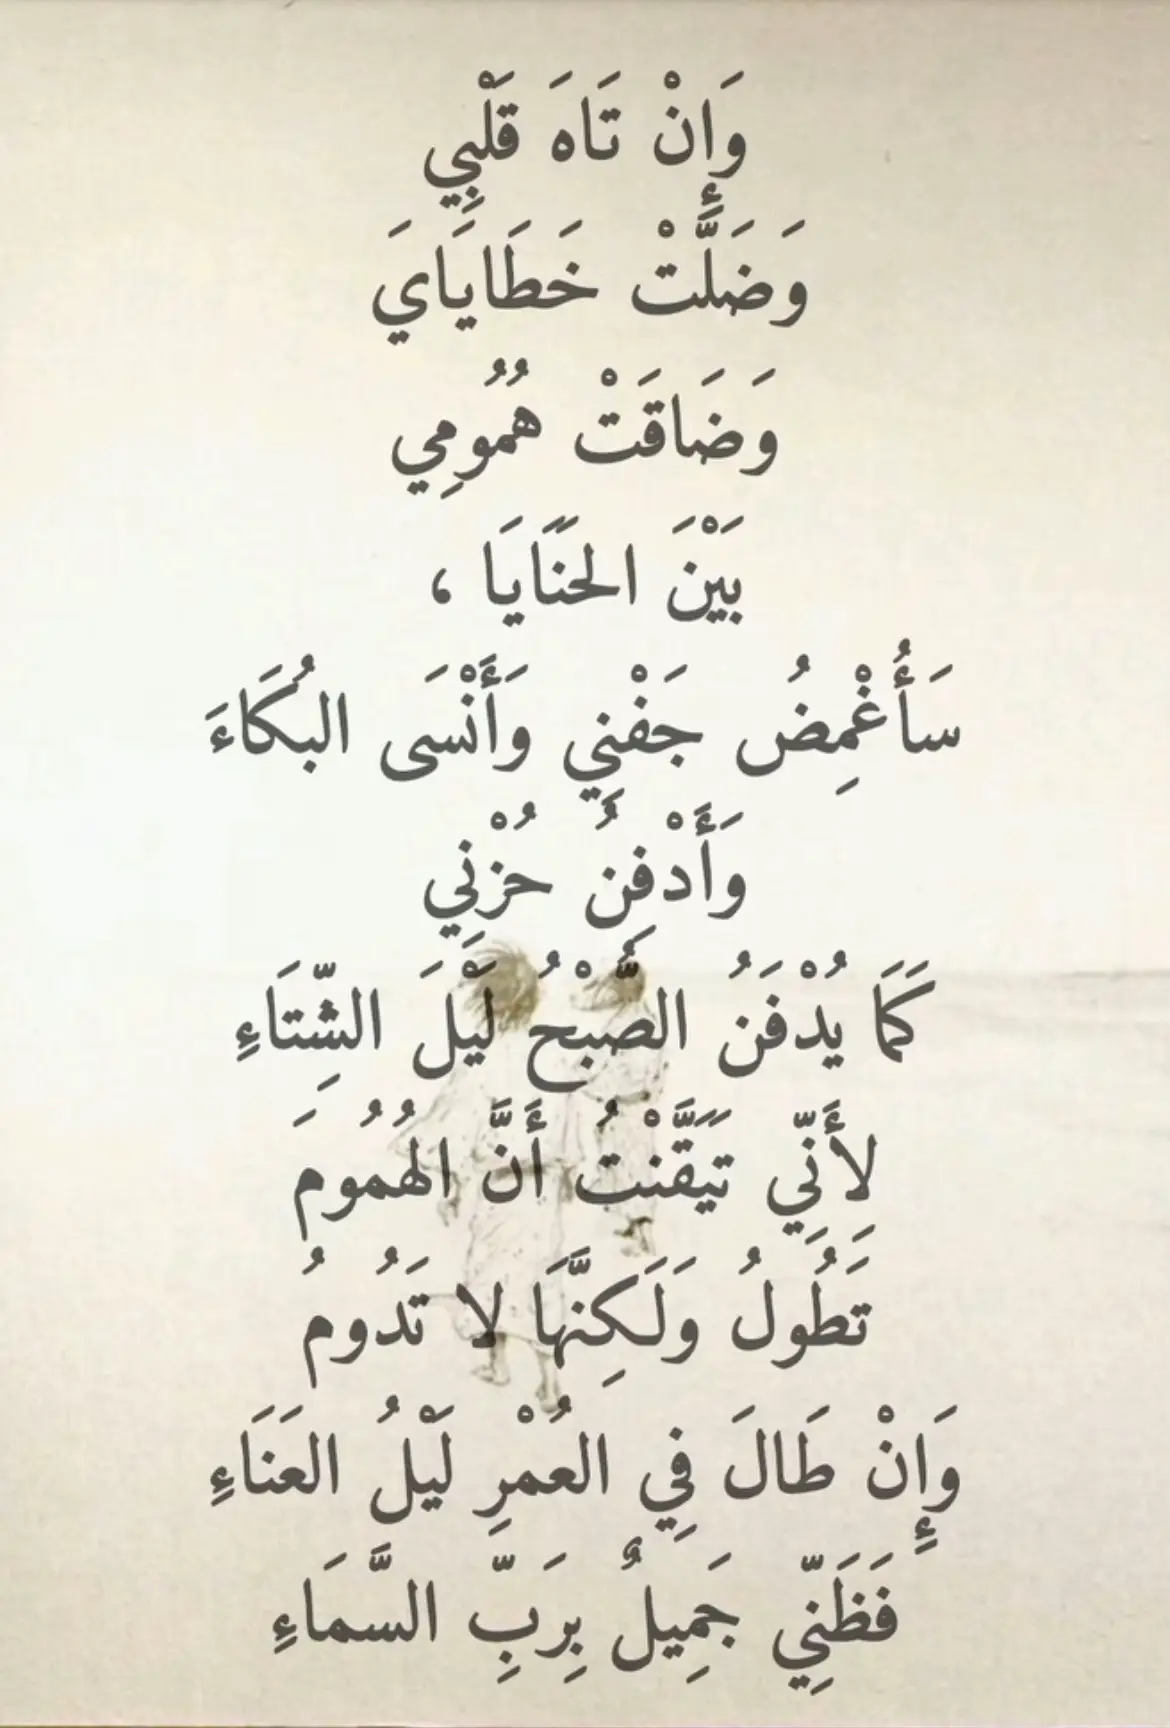 وَإِنْ تَاهَ قَلْبِي
وَضَلَّتْ خَطَايَايَ
وَضَاقَتْ هُمُومِي
بَيْنَ الحَنَايَا ،
سَأُغْمِضُ جَفْنِي وَأَنْسَى البُكَاءَ
وَأَدْفِنُ حُزْنِي
كَمَا يُدْفَنُ الصُّبْحُ لَيْلَ الشِّتَاءِ
لِأَنِّي تَيَقَّنْتُ أَنَّ الهُمُومَ
تَطُولُ وَلَكِنَّهَا لا تَدُومُ
وَإِنْ طَالَ فِي العُمْرِ لَيْلُ العَنَاءِ
فَظَنِّي جَمِيلٌ بِرَبِّ السَّمَاءِ